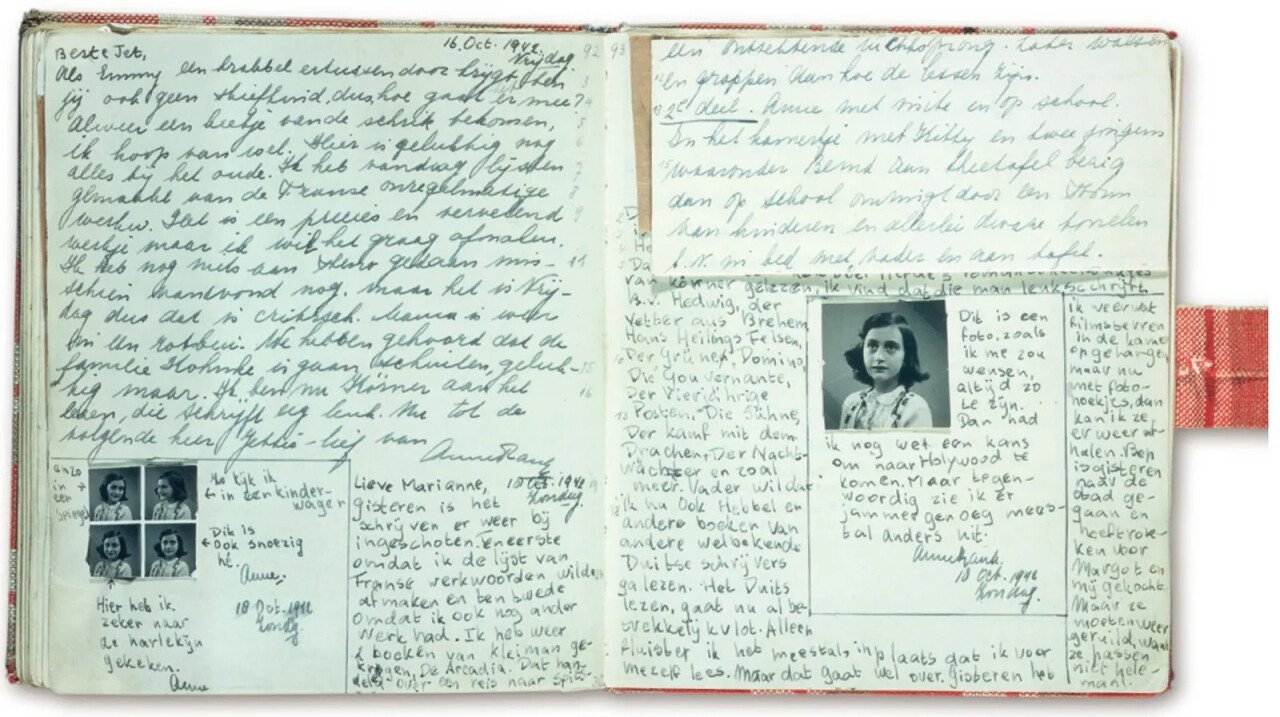 16. Oct. 1942
Vrijdag
92
Beste Jet,
Als Emmy een krabbel ertussendoor krijgt, ben
jij ook geen stiefkind, dus hoe gaat er mee?
Alweer een beetje van de schrik bekomen,
ik hoop van wel. Hier is gelukkig nog
alles bij het oude. Ik heb vandaag lijsten
gemaakt van de Franse onregelmatige
werkw. Het is een precies en vervelend
werkje maar ik wil het graag afmaken.
Ik heb nog niets aan steno gedaan mis-
schien vanavond nog, maar het is Vrij-
dag dus dat is critisch. Mama is weer
in Een robben. We hebben gehoord dat de
familie Kohnke is gaan scheiden, geluk-
kig maar. Ik ben nu Körner aan het
lezen, die schrijft erg leuk. Nu tot de
volgende keer Jettie-lief van
Anne Frank
en zo
in
een
spiegel
No kijk ik
in een kinder-
wagen
Dit is
ook snoezig
hè.
Anne.
Hier heb ik
zeker naar
de harlekijn
gekeken.
Anne
18 Oct. 1942
Zondag
Lieve Marianne,
18 Oct. 1942
Zondag
gisteren is het
schrijven er weer bij
ingeschoten. Eneerste
omdat ik de lijst van
Franse werkwoorden wilde
afmaken en ten twede
omdat ik ook nog ander
werk had. Ik heb weer
2 boeken van kleiman ge-
kregen, De Arcadia. Dat han-
deld over een reis naar Spits-
93
een ontzettende luchtsprong. Later walsen
en grappen dan hoe de lessen zijn.
2e deel. Anne met visite en op school.
In het kamertje met Kitty en twee jongens
waaronder Bernd aan theetafel bezig
dan op school omringt door een stroom
van kinderen en allerlei dwaze tonelen
b.v. in bed met vader en aan tafel.
van körner gelezen, ik vind dat die man leuk schrijft.
B.v. Hedwig, der
Vetter aus Brehem,
Hans Heilings Felsen,
Der Grüne, Domino,
Die Gouvernante,
Der Vierjährige
Posten. Die Sühne,
Der kamf mit dem
Drachen, Der Nacht-
wächter en zoal
meer. Vader wil dat
ik nu ook Hebbel en
andere boeken van
andere welbekende
Duitse schrijvers
ga lezen. Het Duits
lezen, gaat nu al be-
trekkelijk vlot. Alleen
fluister ik het meestal inplaats dat ik voor
mezelf lees. Maar dat gaat wel over. Gisteren heb
Dit is een
foto, zoals
ik me zou
wensen,
altijd zo
te zijn.
Dan had
ik nog wel een kans
om naar Holywood te
komen. Maar tegen-
woordig zie ik er
jammer genoeg mees-
tal anders uit.
Annefrank.
18 Oct. 1942
Zondag.
ik weer wat
filmsterren
in de kamer
opgehangen
maar nu
met foto-
hoekjes, dan
kan ik ze
er weer af-
halen. Bep
is gisteren
naar de
stad ge-
gaan en
heeft rok-
ken voor
Margot en
mij gekocht.
Maar ze
moeten weer
geruild, want
ze passen
niet hele-
maal.